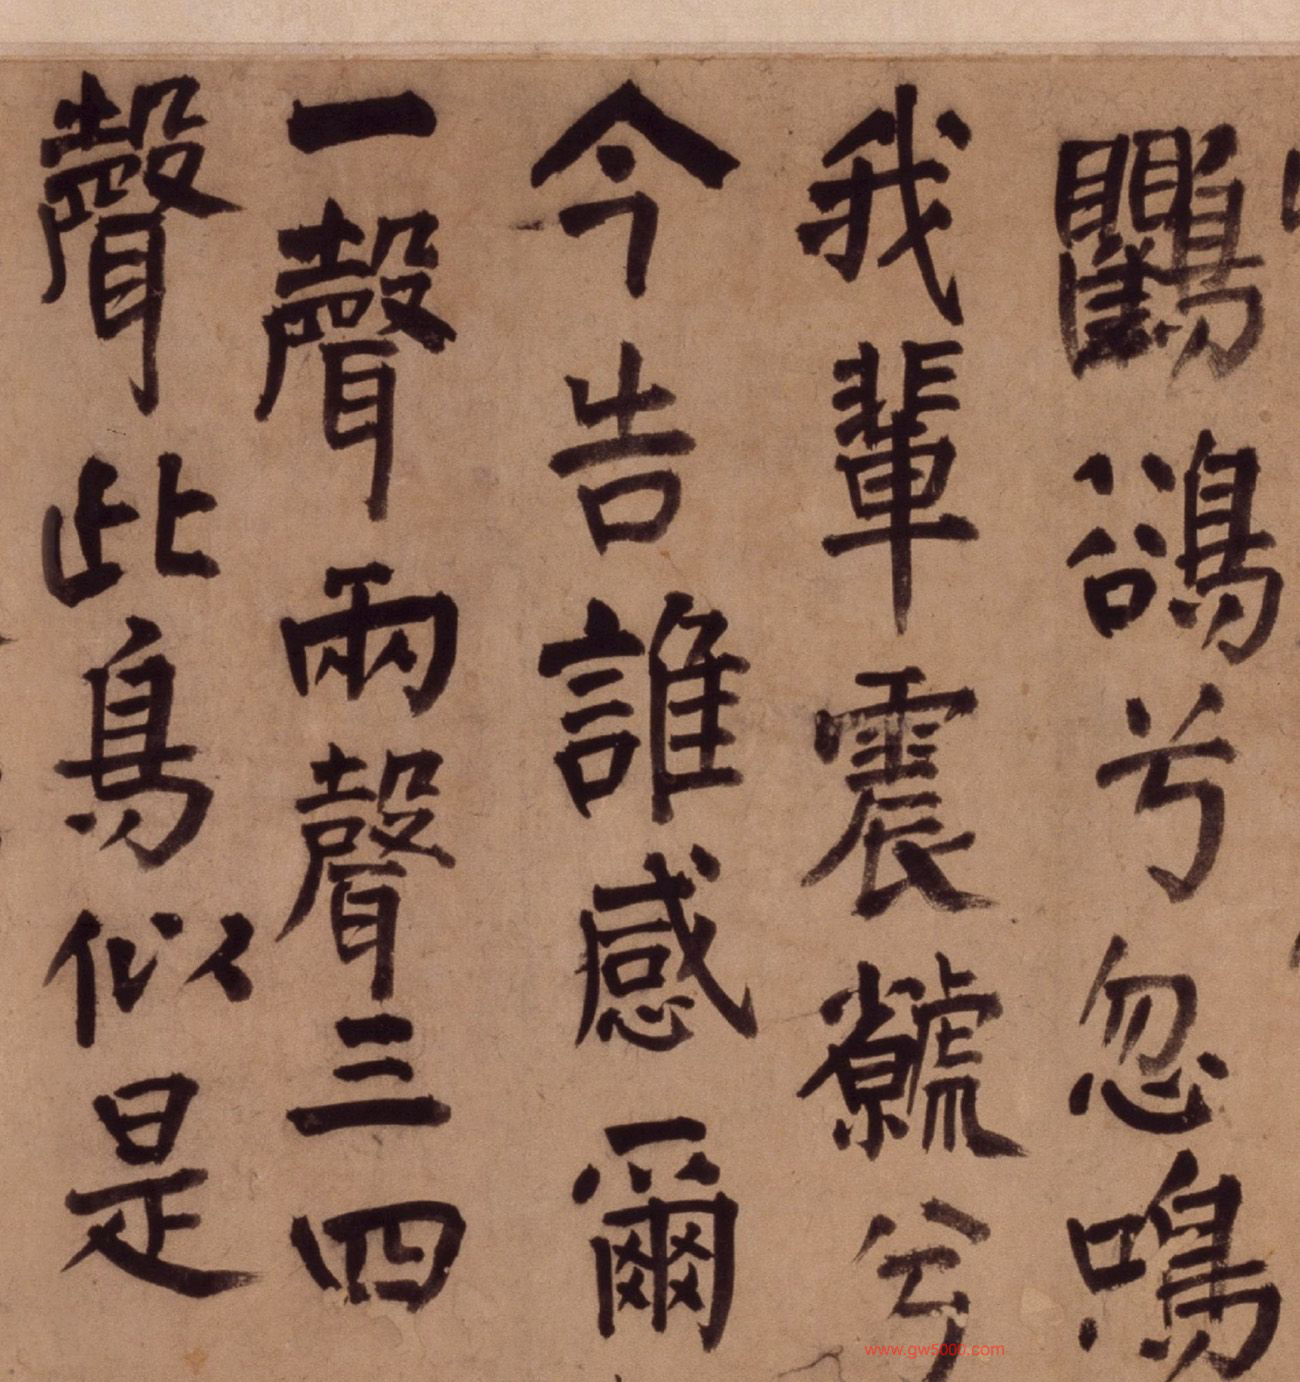 鸜鵒兮忽鳴
我輩震虩兮
今告誰感爾
一聲兩聲三四
聲此鳥似是
www.gw5000.com